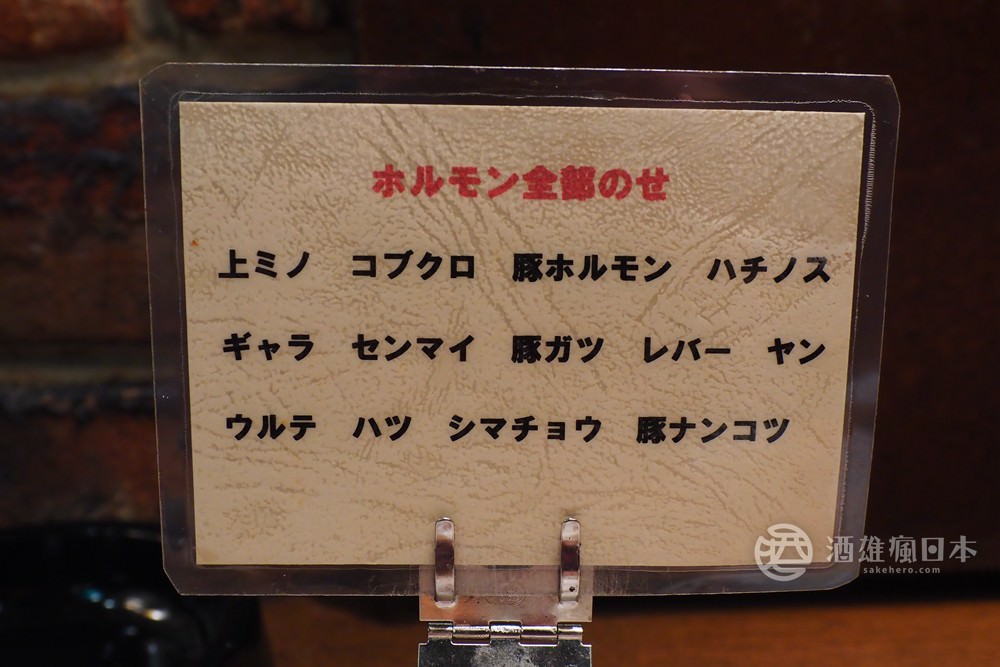 ホルモン全部のせ
上ミノ　コブクロ　豚ホルモン　ハチノス
ギャラ　センマイ　豚ガツ　レバー　ヤン
ウルテ　ハツ　シマチョウ　豚ナンコツ
酒雄瘋日本
sakehero.com